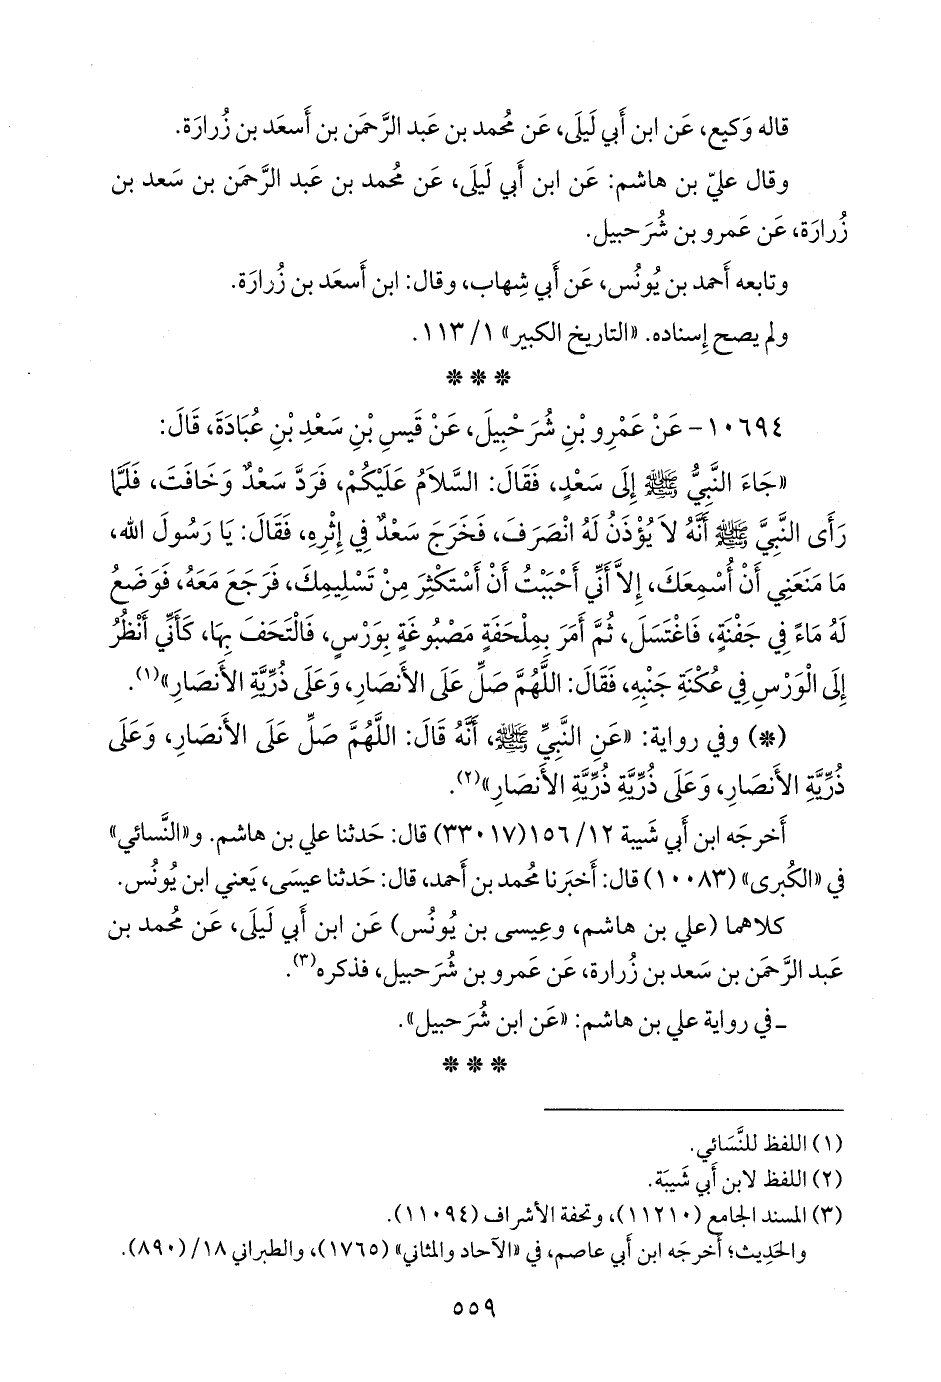 قاله وَكيع، عَن ابن أَبي لَيلَى، عَن مُحمد بن عَبد الرَّحمَن بن أَسعَد بن زُرارَة.
وقال عليّ بن هاشم: عَن ابن أَبي لَيلَى، عَن مُحمد بن عَبد الرَّحمَن بن سَعد بن
زُرارَة، عَن عَمرو بن شُرَحبيل.
وتابعه أَحمد بن يُونُس، عَن أَبي شِهاب، وقال: ابن أَسعَد بن زُرارَة.
ولم يصح إِسناده. «التاريخ الكبير» ١/ ١١٣.
* * *
١٠٦٩٤- عَنْ عَمْرِو بْنِ شُرَحْبِيلَ، عَنْ قَيْسِ بْنِ سَعْدِ بْنِ عُبَادَةَ، قَالَ:
«جَاءَ النَّبِيُّ ﷺ إِلَى سَعْدٍ، فَقَالَ: السَّلاَمُ عَلَيْكُمْ، فَرَدَّ سَعْدٌ وَخَافَتَ، فَلَمَّا
رَأَى النَّبِيُّ ﷺ أَنَّهُ لاَ يُؤْذَنُ لَهُ انْصَرَفَ، فَخَرَجَ سَعْدٌ فِي إِثْرِهِ، فَقَالَ: يَا رَسُولَ الله،
مَا مَنَعَنِي أَنْ أُسْمِعَكَ، إِلاَّ أَنِّي أَحْبَبْتُ أَنْ أَسْتَكْثِرَ مِنْ تَسْلِيمِكَ، فَرَجَعَ مَعَهُ، فَوَضَعُ
لَهُ مَاءً فِي جَفْنَةٍ، فَاغْتَسَلَ، ثُمَّ أَمَرَ بِمِلْحَفَةٍ مَصْبُوغَةٍ بِوَرْسٍ، فَالْتَحَفَ بِهَا، كَأَنِّي أَنْظُرُ
إِلَى الْوَرْسِ فِي عُكْنَةِ جَنْبِهِ، فَقَالَ: اللَّهُمَّ صَلِّ عَلَى الأَنصَارِ، وَعَلَى ذُرِّيَّةِ الأَنصَارِ»(١).
(*) وفي رواية: «عَنِ النَّبِيِّ ﷺ، أَنَّهُ قَالَ: اللَّهُمَّ صَلِّ عَلَى الأَنصَارِ، وَعَلَى
ذُرِّيَّةِ الأَنصَارِ، وَعَلَى ذُرِّيَّةِ ذُرِّيَّةِ الأَنصَارِ»(٢).
أَخرجَه ابن أَبي شَيبة ١٢/ ١٥٦(٣٣٠١٧) قال: حَدثنا علي بن هاشم. و«النَّسائي»
في «الكُبرى» (١٠٠٨٣) قال: أَخبَرنا مُحمد بن أَحمد، قال: حَدثنا عيسَى، يَعني ابن يُونُس.
كلاهما (علي بن هاشم، وعِيسى بن يُونُس) عَن ابن أَبي لَيلَى، عَن مُحمد بن
عَبد الرَّحمَن بن سَعد بن زُرارة، عَن عَمرو بن شُرَحبيل، فذكره(٣).
ـ في رواية علي بن هاشم: «عَن ابن شُرَحبيل».
* * *
(١) اللفظ للنَّسَائي.
(٢) اللفظ لابن أَبي شَيبَة.
(٣) المسند الجامع (١١٢١٠)، وتحفة الأشراف (١١٠٩٤).
والحَدِيث؛ أَخرجَه ابن أَبي عاصم، في «الآحاد والمثاني» (١٧٦٥)، والطبراني ١٨/ (٨٩٠).
٥٥٩